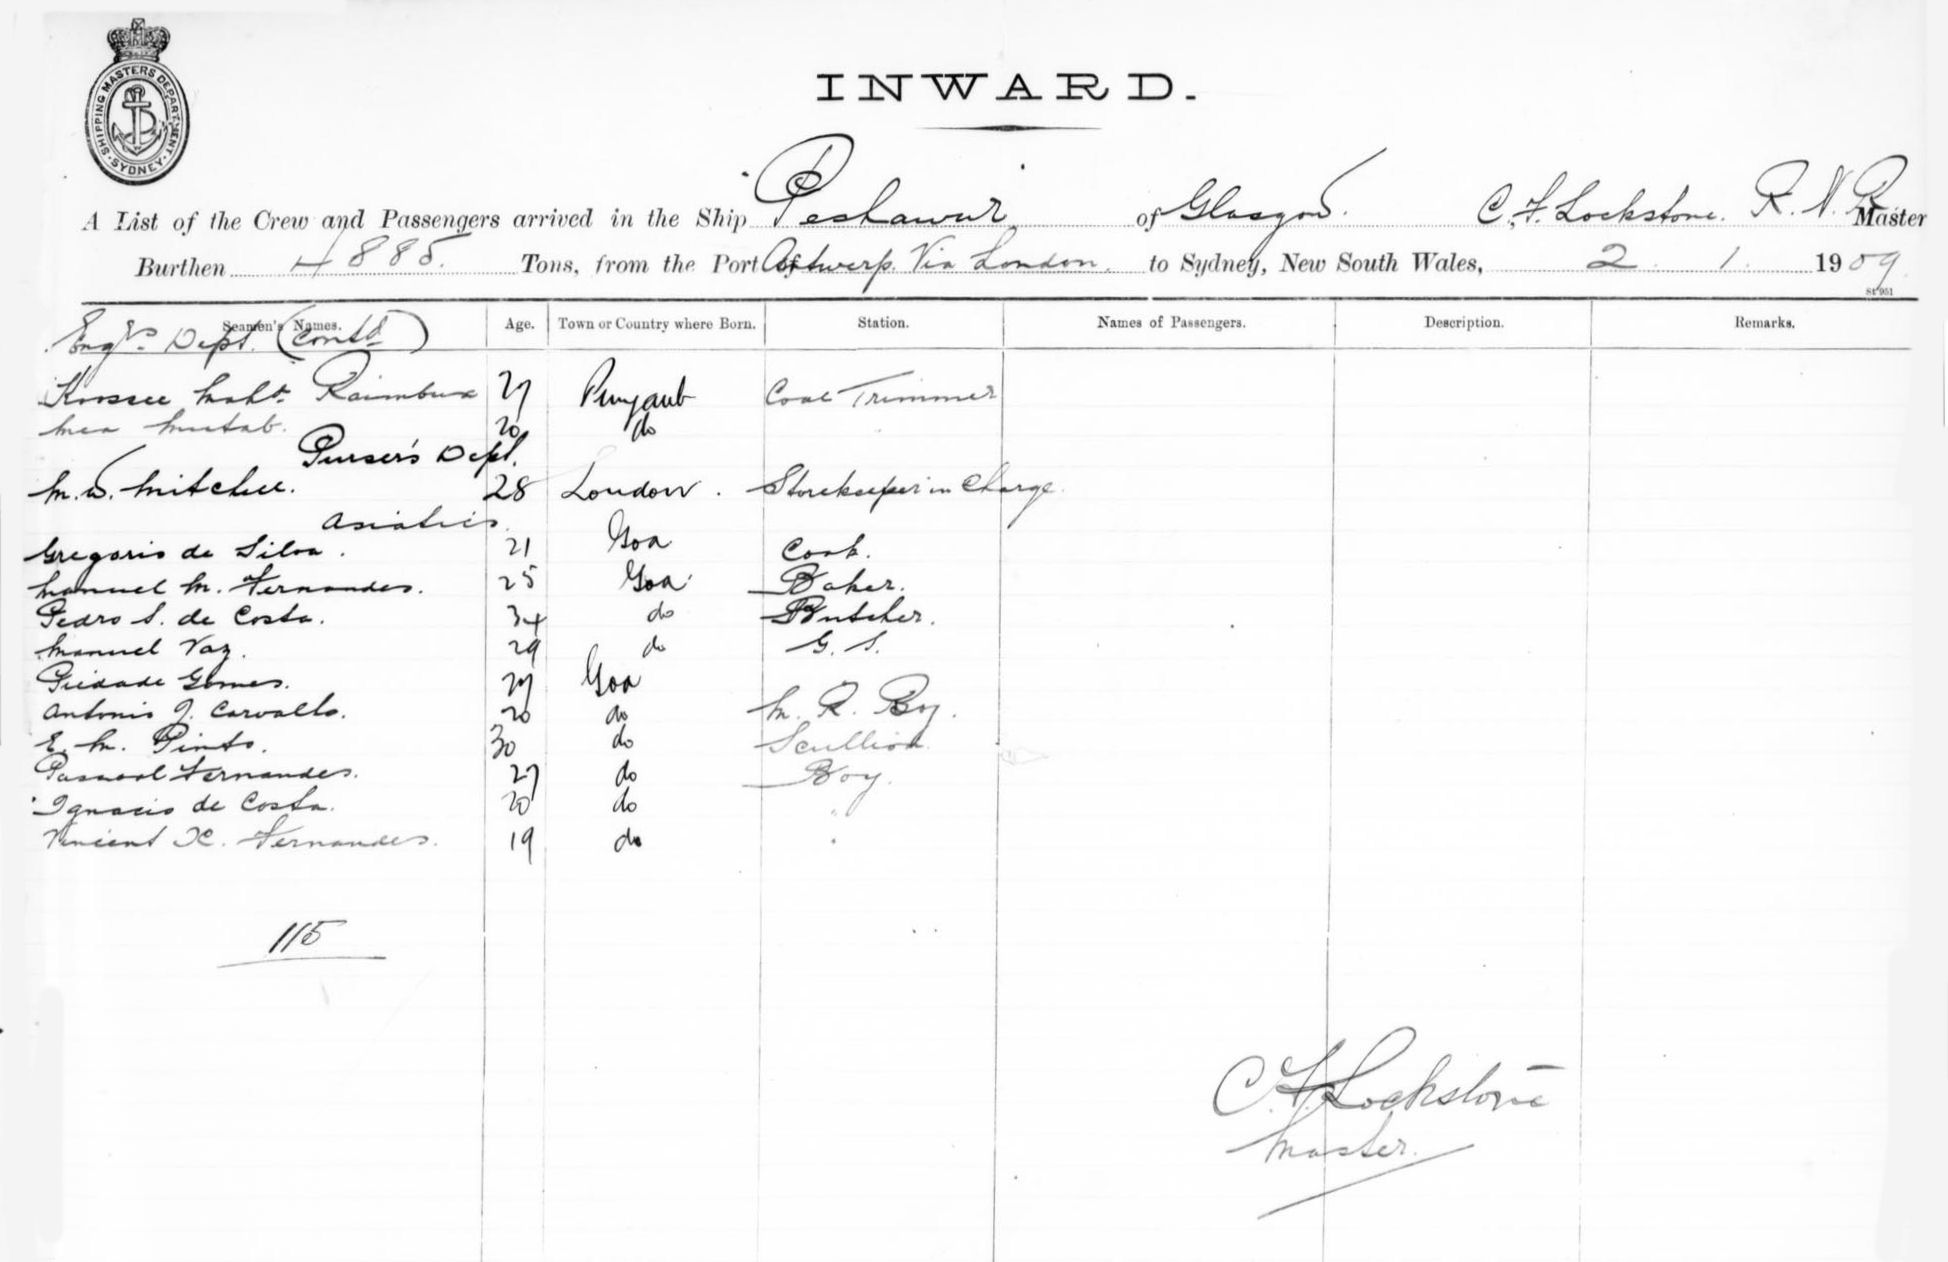 SHIPPING MASTERS DEPARTMENT
SYDNEY
INWARD.
A List of the Crew and Passengers arrived in the Ship Peshawur of Glasgow. C. F. Lockstone. R. N. R. Master
Burthen 4885. Tons, from the Port of Antwerp. Via London. to Sydney, New South Wales, 2. 1. 1909
Seamen's Names. Age. Town or Country where Born. Station. Names of Passengers. Description. Remarks.
Engrs Dept. (Contd)
Kossee Mahd. Raimbux 27 Punjaub Coal Trimmer
Mea Mutab. 20 do
Purser's Dept.
M. W. Mitchell. 28 London. Storekeeper in Charge.
Asiatics.
Gregorio de Silva. 21 Goa Cook.
Manuel M. Fernandes. 25 Goa Baker.
Pedro S. de Costa. 34 do Butcher.
Manuel Vaz. 29 do G. S.
Piedade Gomes. 27 Goa
Antonio J. Carvallo. 20 do M. R. Boy.
E. M. Pinto. 30 do Scullion
Pascoal Fernandes. 27 do Boy.
Ignacio de Costa. 20 do "
Vincent X. Fernandes. 19 do "
115
C. F. Lockstone
Master.